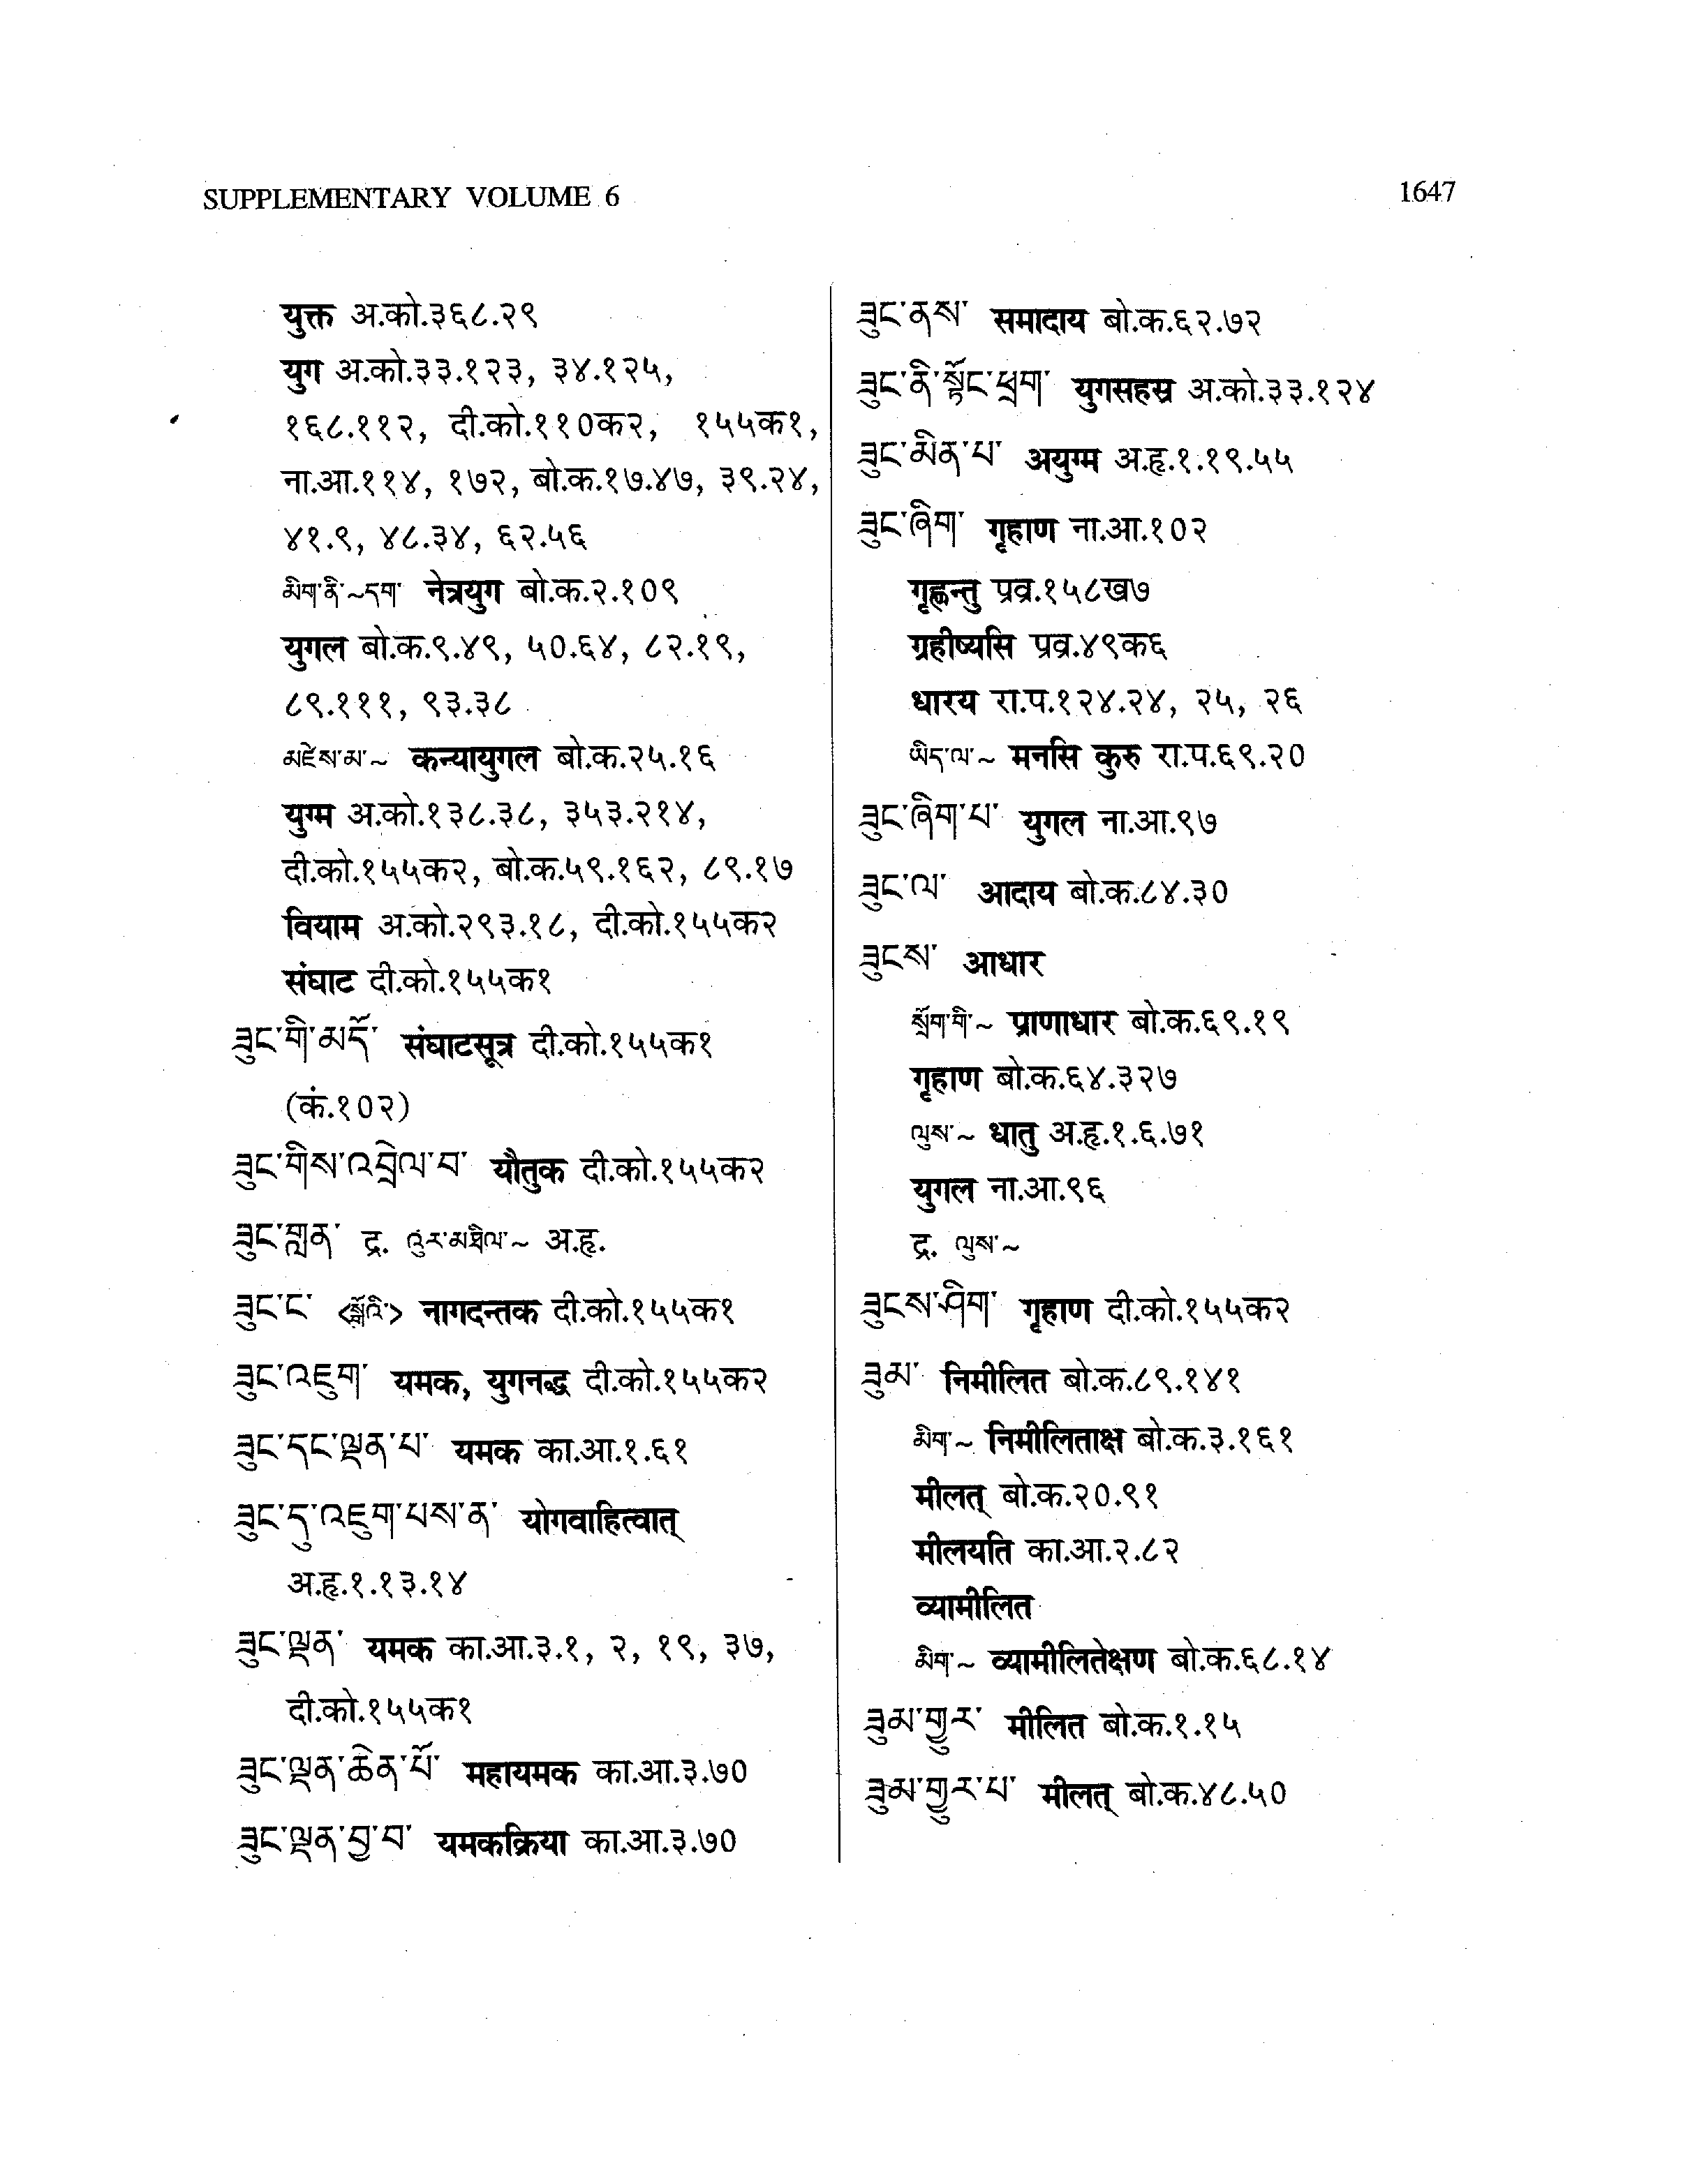 SUPPLEMENTARY VOLUME 6
1647
युक्त अ.को.३६८.२९
युग अ.को.३३.१२३, ३४.१२५,
१६८.११२, दी.को.११०क२, १५५क१,
ना.आ.११४, १७२, बो.क.१७.४७, ३९.२४,
४१.९, ४८.३४, ६२.५६
མིག་ནི་~དག་ नेत्रयुग बो.क.२.१०९
युगल बो.क.९.४९, ५०.६४, ८२.१९,
८९.१११, ९३.३८
མཛེས་མ་~ कन्यायुगल बो.क.२५.१६
युग्म अ.को.१३८.३८, ३५३.२१४,
दी.को.१५५क२, बो.क.५९.१६२, ८९.१७
वियाम अ.को.२९३.१८, दी.को.१५५क२
संघाट दी.को.१५५क१
ཟུང་གི་མདོ་ संघाटसूत्र दी.को.१५५क१
(कं.१०२)
ཟུང་གིས་འབྲེལ་བ་ यौतुक दी.को.१५५क२
ཟུང་གླན་ द्र. འུར་མཐིལ་~ अ.हृ.
ཟུང་ང་ <སྒྲོའི་> नागदन्तक दी.को.१५५क१
ཟུང་འཇུག་ यमक, युगनद्ध दी.को.१५५क२
ཟུང་དང་ལྡན་པ་ यमक का.आ.१.६१
ཟུང་དུ་འཇུག་པས་ན་ योगवाहित्वात्
अ.हृ.१.१३.१४
ཟུང་ལྡན་ यमक का.आ.३.१, २, १९, ३७,
दी.को.१५५क१
ཟུང་ལྡན་ཆེན་པོ་ महायमक का.आ.३.७०
ཟུང་ལྡན་བྱ་བ་ यमकक्रिया का.आ.३.७०
ཟུང་ནས་ समादाय बो.क.६२.७२
ཟུང་ནི་སྟོང་ཕྲག་ युगसहस्र अ.को.३३.१२४
ཟུང་མིན་པ་ अयुग्म अ.हृ.१.१९.५५
ཟུང་ཞིག་ गृहाण ना.आ.१०२
गृह्णन्तु प्रव्र.१५८ख७
ग्रहीष्यसि प्रव्र.४९क६
धारय रा.प.१२४.२४, २५, २६
ཡིད་ལ་~ मनसि कुरु रा.प.६९.२०
ཟུང་ཞིག་པ་ युगल ना.आ.९७
ཟུང་ལ་ आदाय बो.क.८४.३०
ཟུངས་ आधार
སྲོག་གི་~ प्राणाधार बो.क.६९.१९
गृहाण बो.क.६४.३२७
ལུས་~ धातु अ.हृ.१.६.७१
युगल ना.आ.९६
द्र. ལུས་~
ཟུངས་ཤིག་ गृहाण दी.को.१५५क२
ཟུམ་ निमीलित बो.क.८९.१४१
མིག་~ निमीलिताक्ष बो.क.३.१६१
मीलत् बो.क.२०.९१
मीलयति का.आ.२.८२
व्यामीलित
མིག་~ व्यामीलितेक्षण बो.क.६८.१४
ཟུམ་གྱུར་ मीलित बो.क.१.१५
ཟུམ་གྱུར་པ་ मीलत् बो.क.४८.५०